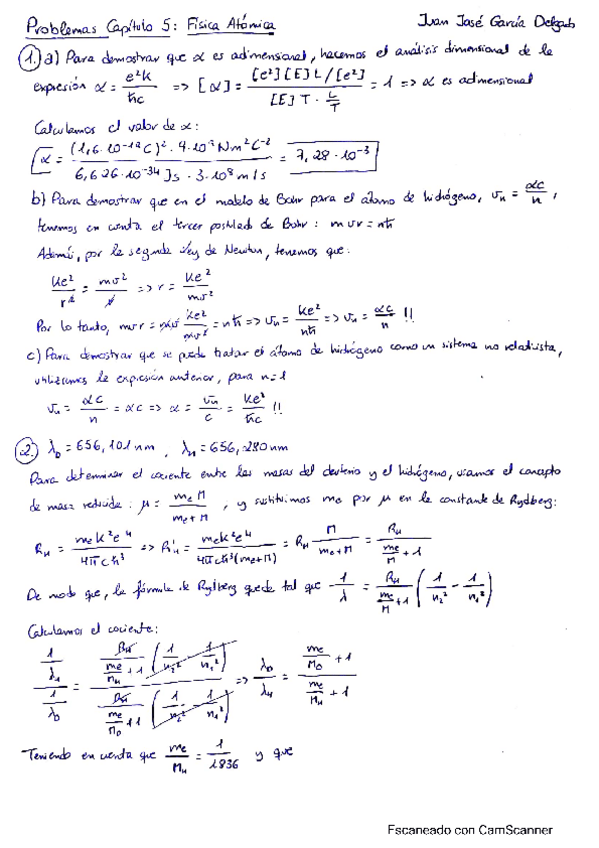 Problemas Capítulo 5: Física Atómica
Juan José García Delgado
1. a) Para demostrar que α es adimensional, hacemos el análisis dimensional de la
expresión α = e²k/ħc => [α] = [e²][E]L/[e²] / [E]T · L/T = 1 => α es adimensional
Calculamos el valor de α:
α = (1,6·10⁻¹⁹C)² · 9·10⁹Nm²C⁻² / 6,626·10⁻³⁴Js · 3·10⁸m/s = 7,28·10⁻³
b) Para demostrar que en el modelo de Bohr para el átomo de hidrógeno, vₙ = αc/n,
tenemos en cuenta el tercer postulado de Bohr: mvr = nħ
Además, por la segunda Ley de Newton, tenemos que:
ke²/r² = mv²/r => r = ke²/mv²
Por lo tanto, mvr = mv ke²/mv² = nħ => vₙ = ke²/nħ => vₙ = αc/n !!
c) Para demostrar que se puede tratar el átomo de hidrógeno como un sistema no relativista,
utilizamos la expresión anterior, para n=1
vₙ = αc/n = αc => α = vₙ/c = ke²/ħc !!
2. λ_D = 656,101nm, λ_H = 656,280nm
Para determinar el cociente entre las masas del deuterio y el hidrógeno, usamos el concepto
de masa reducida: μ = mₑM/mₑ+M, y sustituimos mₑ por μ en la constante de Rydberg:
R_H = mₑk²e⁴/4πcħ³ => R'_H = mₑk²e⁴M/4πcħ³(mₑ+M) = R_H M/mₑ+M = R_H/(mₑ/M + 1)
De modo que, la fórmula de Rydberg queda tal que 1/λ = R_H/(mₑ/M + 1) (1/n₂² - 1/n₁²)
Calculamos el cociente:
(1/λ_H)/(1/λ_D) = R_H/(mₑ/M_H + 1) (1/n₂² - 1/n₁²) / R_H/(mₑ/M_D + 1) (1/n₂² - 1/n₁²) => λ_D/λ_H = (mₑ/M_D + 1)/(mₑ/M_H + 1)
Teniendo en cuenta que mₑ/M_H = 1/1836 y que
Escaneado con CamScanner